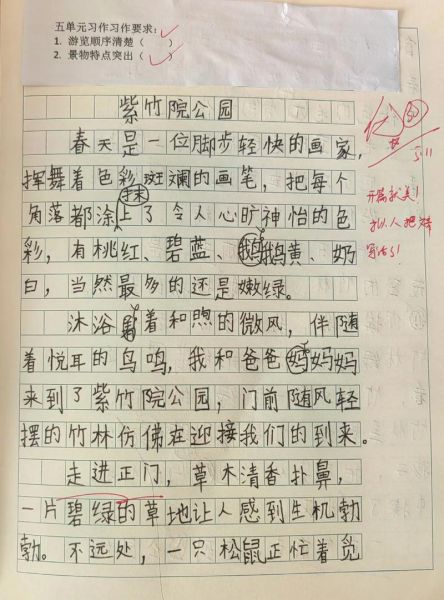 五单元习作习作要求:
1. 游览顺序清楚( )
2. 景物特点突出( )
紫竹院公园
春天是一位脚步轻快的画家,
挥舞着色彩斑斓的画笔,把每个
抹
角落都涂上了令人心旷神怡的色
彩,有桃红、碧蓝、鹅黄、奶
白,当然最多的还是嫩绿。
沐浴着和煦的微风,伴随
着悦耳的鸟鸣,我和爸爸妈妈
来到了紫竹院公园,门前随风轻
摆的竹林仿佛在迎接我们的到来。
走进正门,草木清香扑鼻,
一片碧绿的草地让人感到生机勃
勃。不远处,一只松鼠正忙着觅
优
5.11
开篇就美!
拟人把春
写活了!